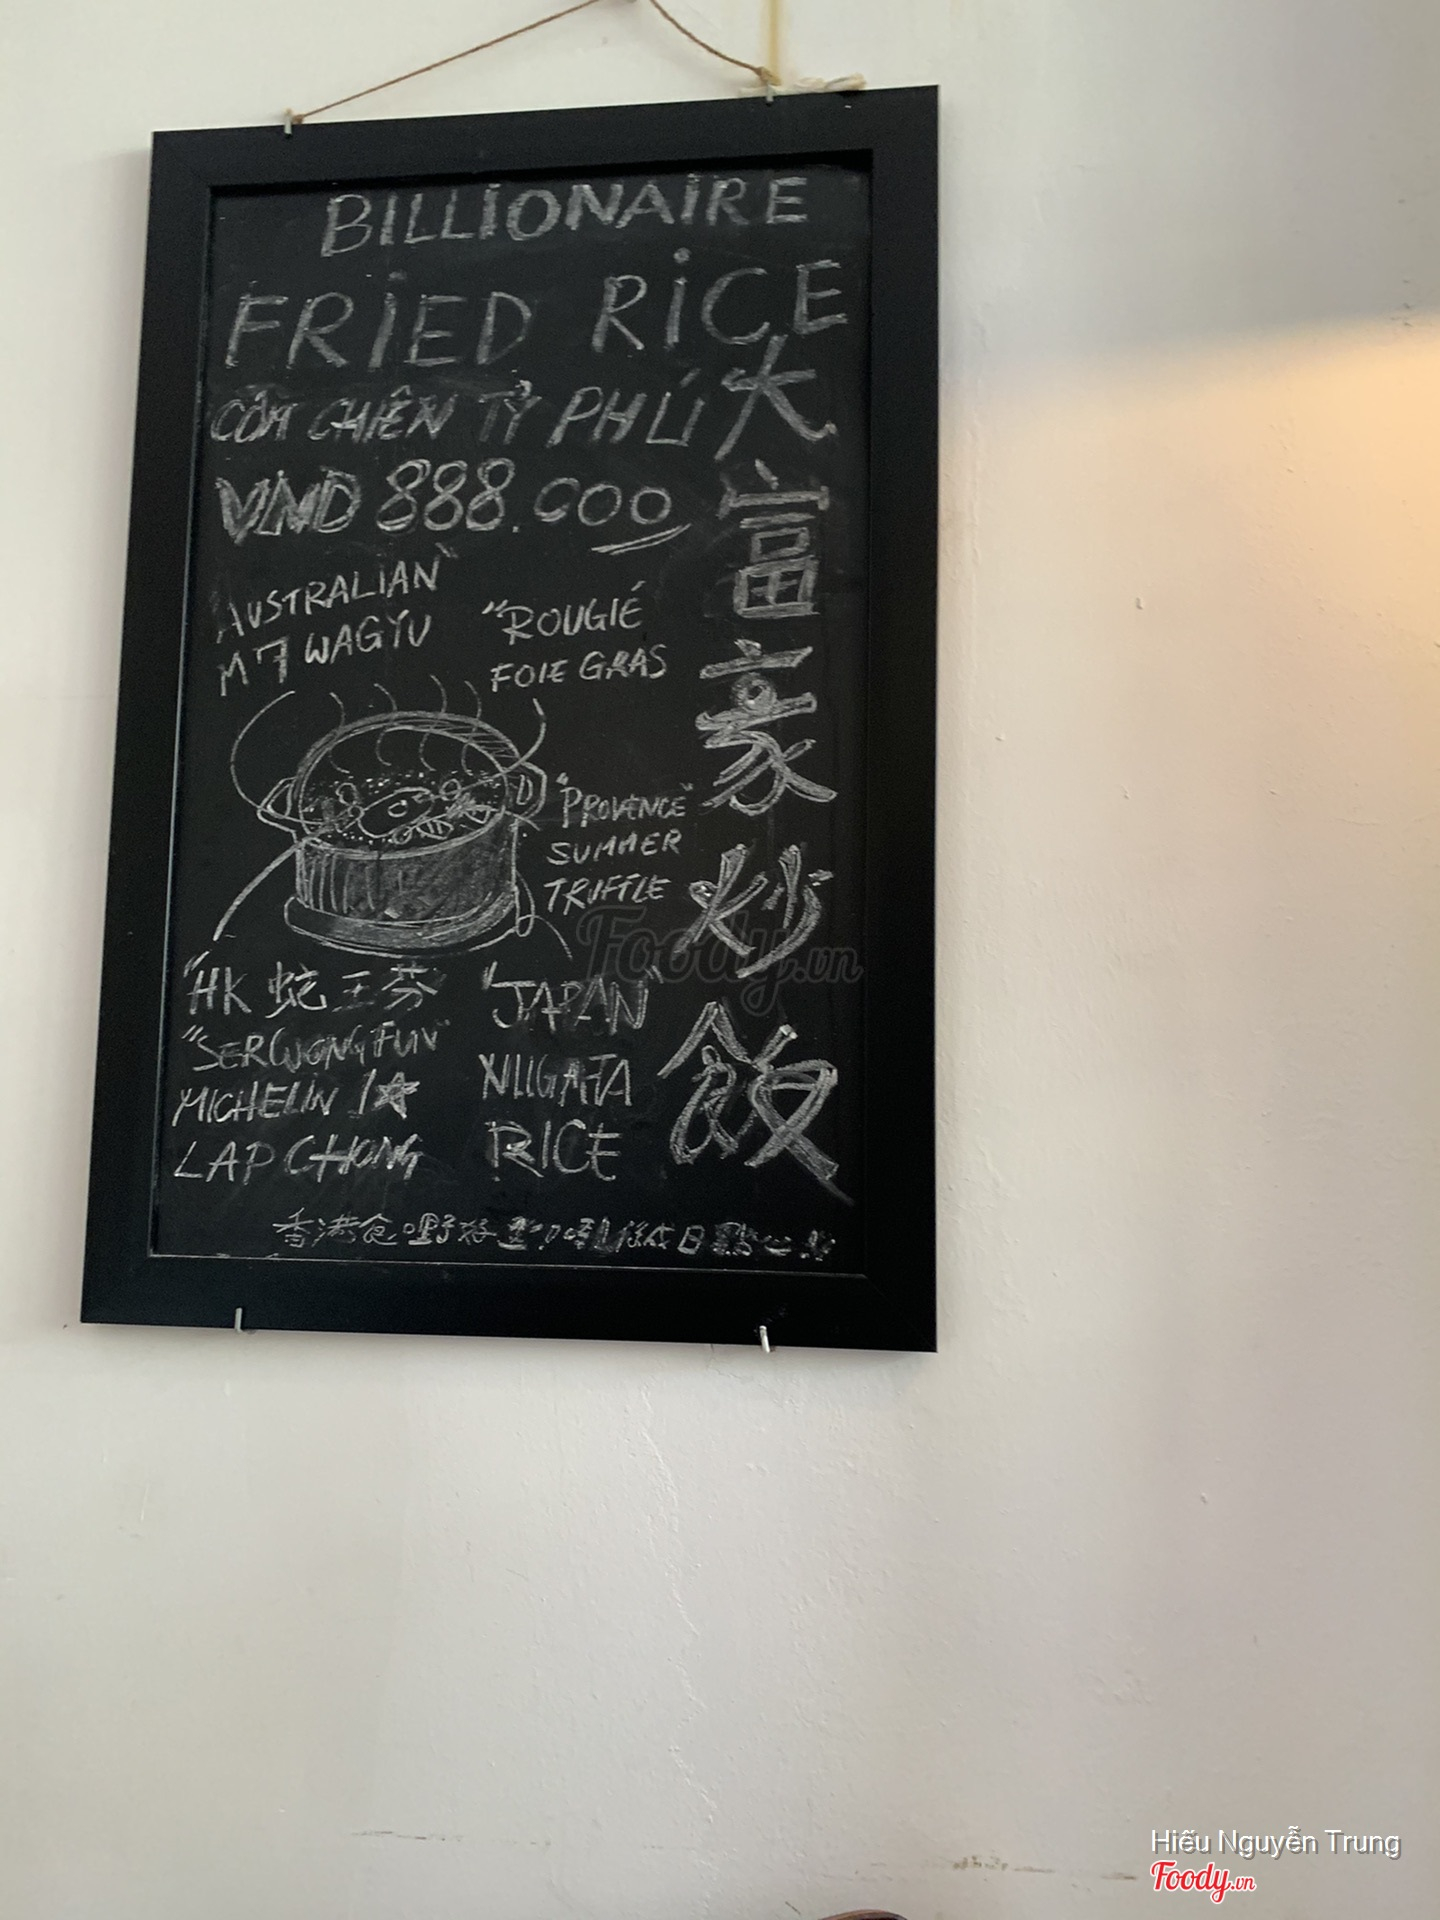 BILLIONAIRE
FRIED RICE
CƠM CHIÊN TỶ PHÚ
VND 888.000
大富豪炒飯
AUSTRALIAN"
M7 WAGYU
"ROUGIÉ
FOIE GRAS
"PROVENCE"
SUMMER
TRUFFLE
"HK 蛇王芬
"SERWONGFUN"
MICHELIN 1★
LAP CHONG
"JAPAN"
NIIGATA
RICE
香港食嘢好
日點心
Foody.vn
Hiếu Nguyễn Trung
Foody.vn